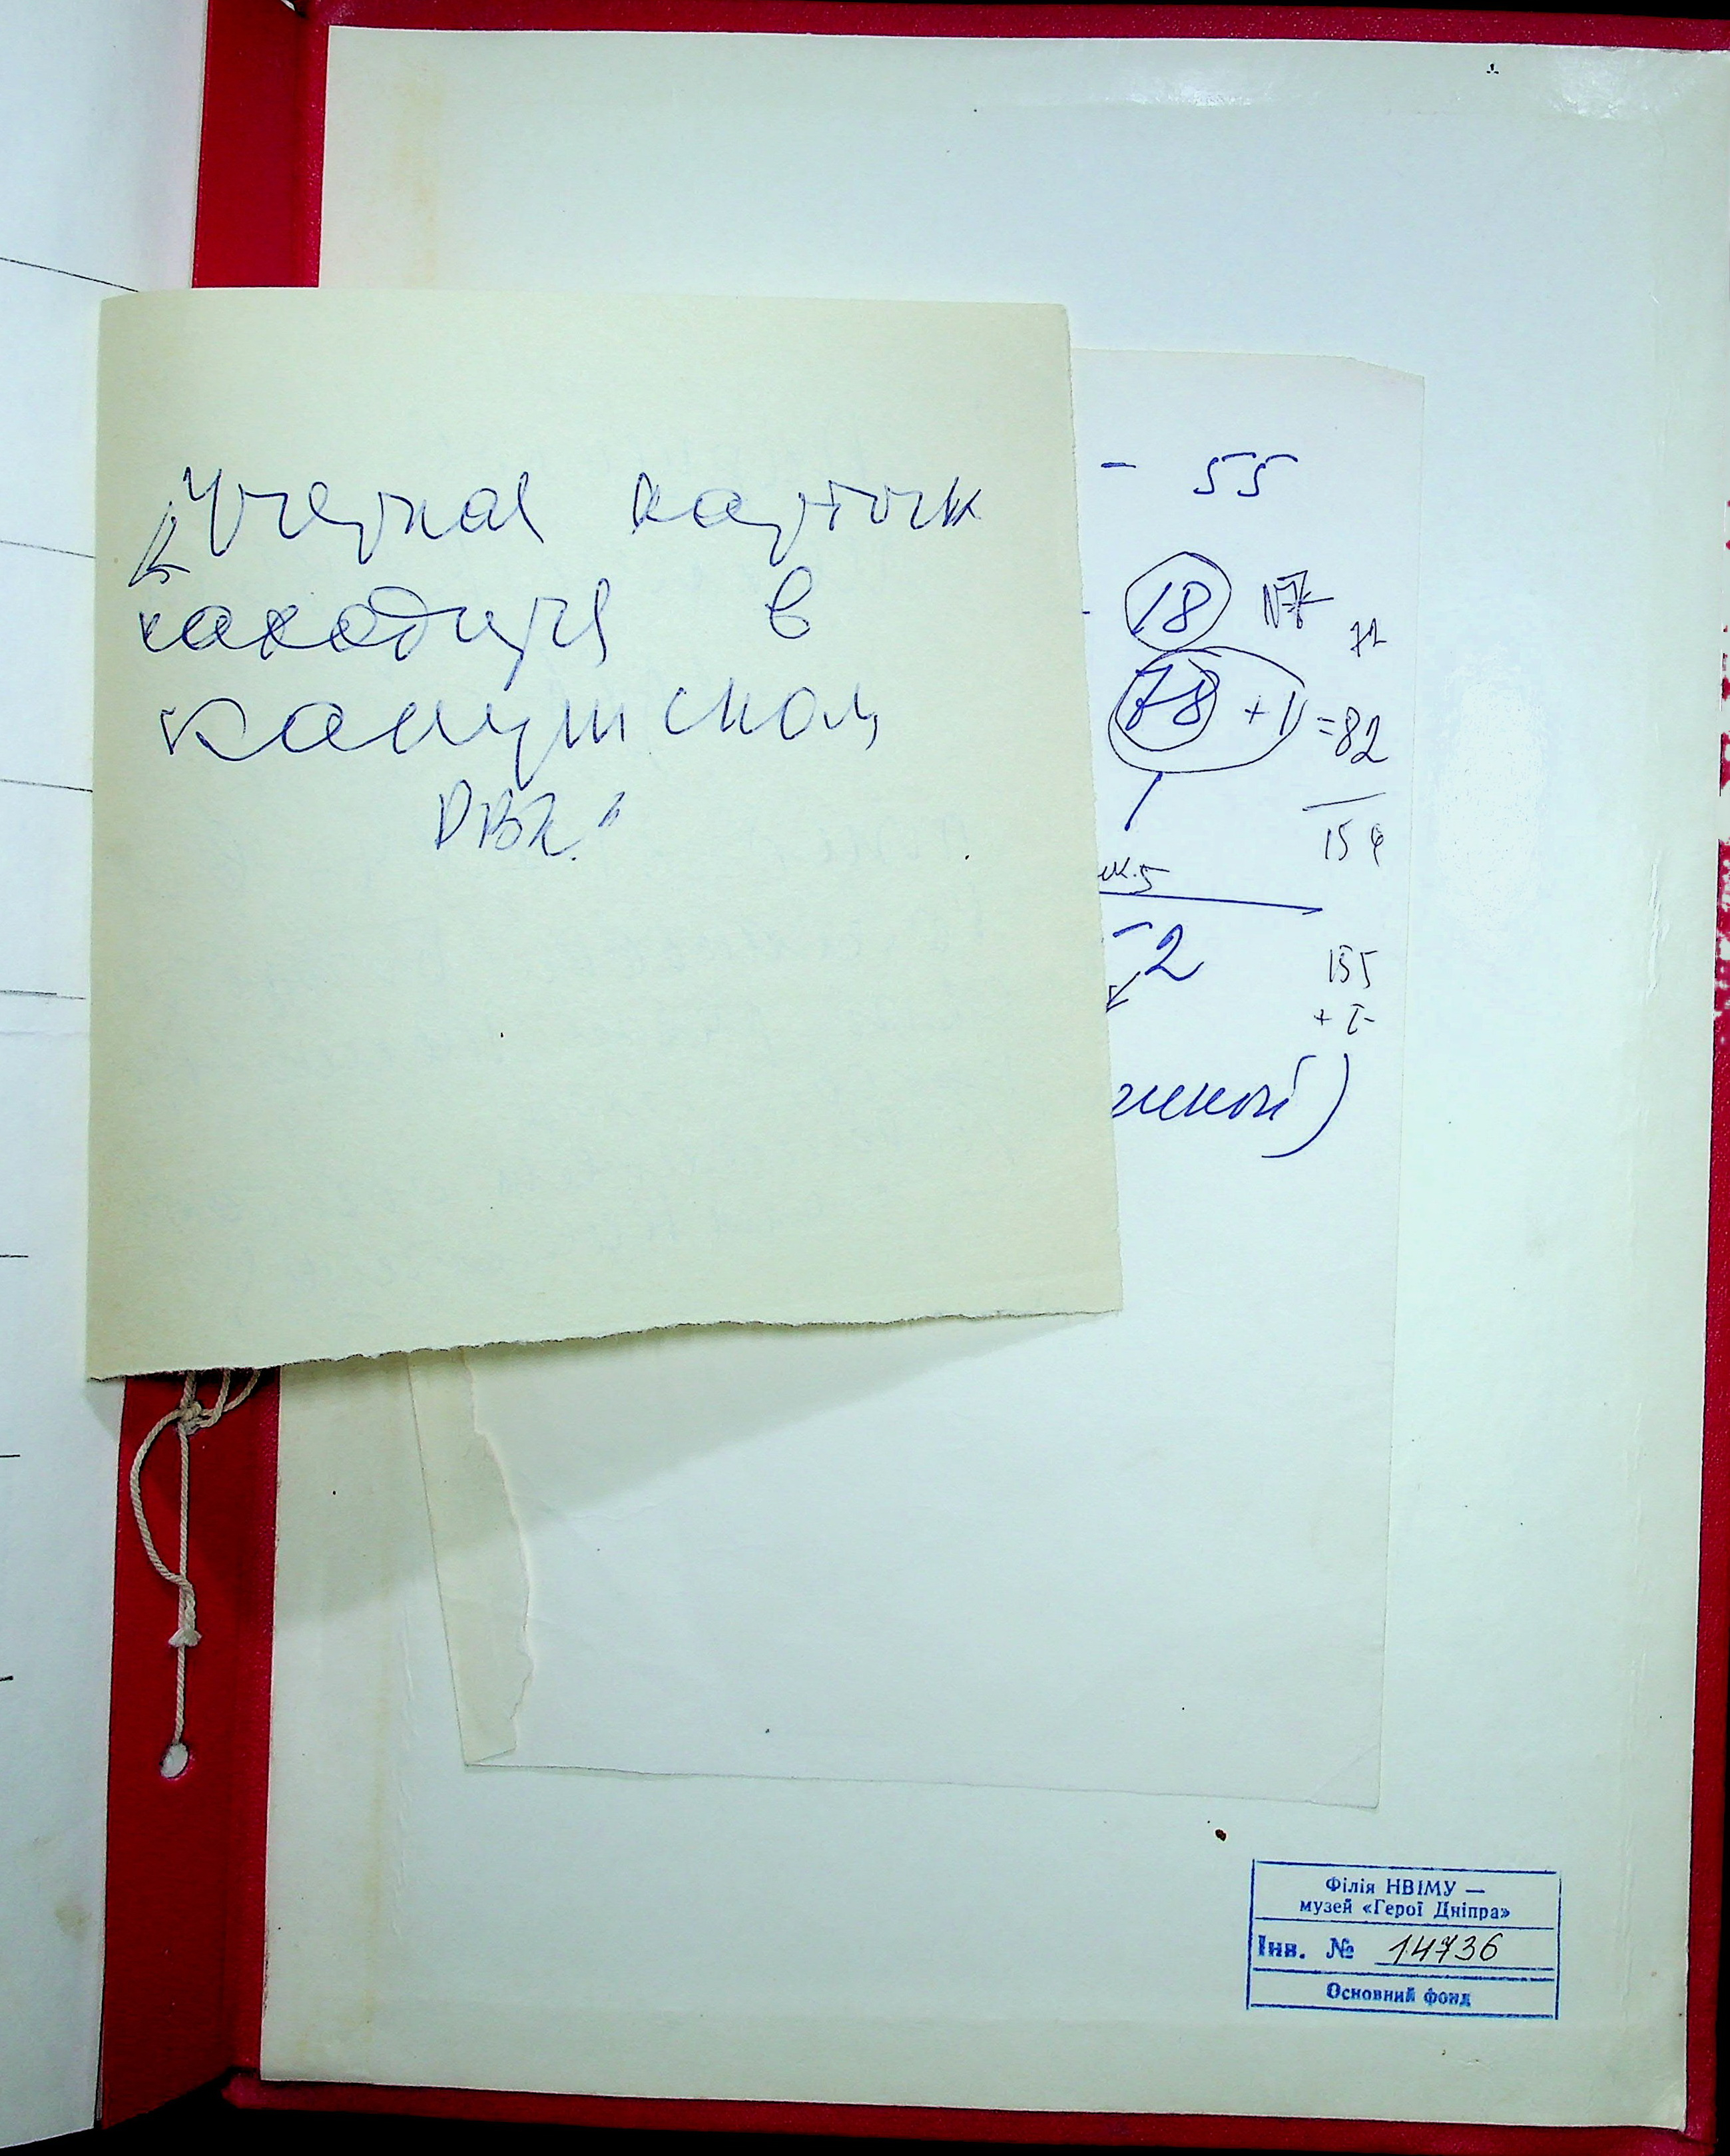 Учетная карточк
находится в
Калушском
РВК.
- 55
18 N7
72
78 + 11 = 82
154
ик.5
- 2
155
+ 1-
жной)
Філія НВІМУ —
музей «Герої Дніпра»
Інв. № 14736
Основний фонд